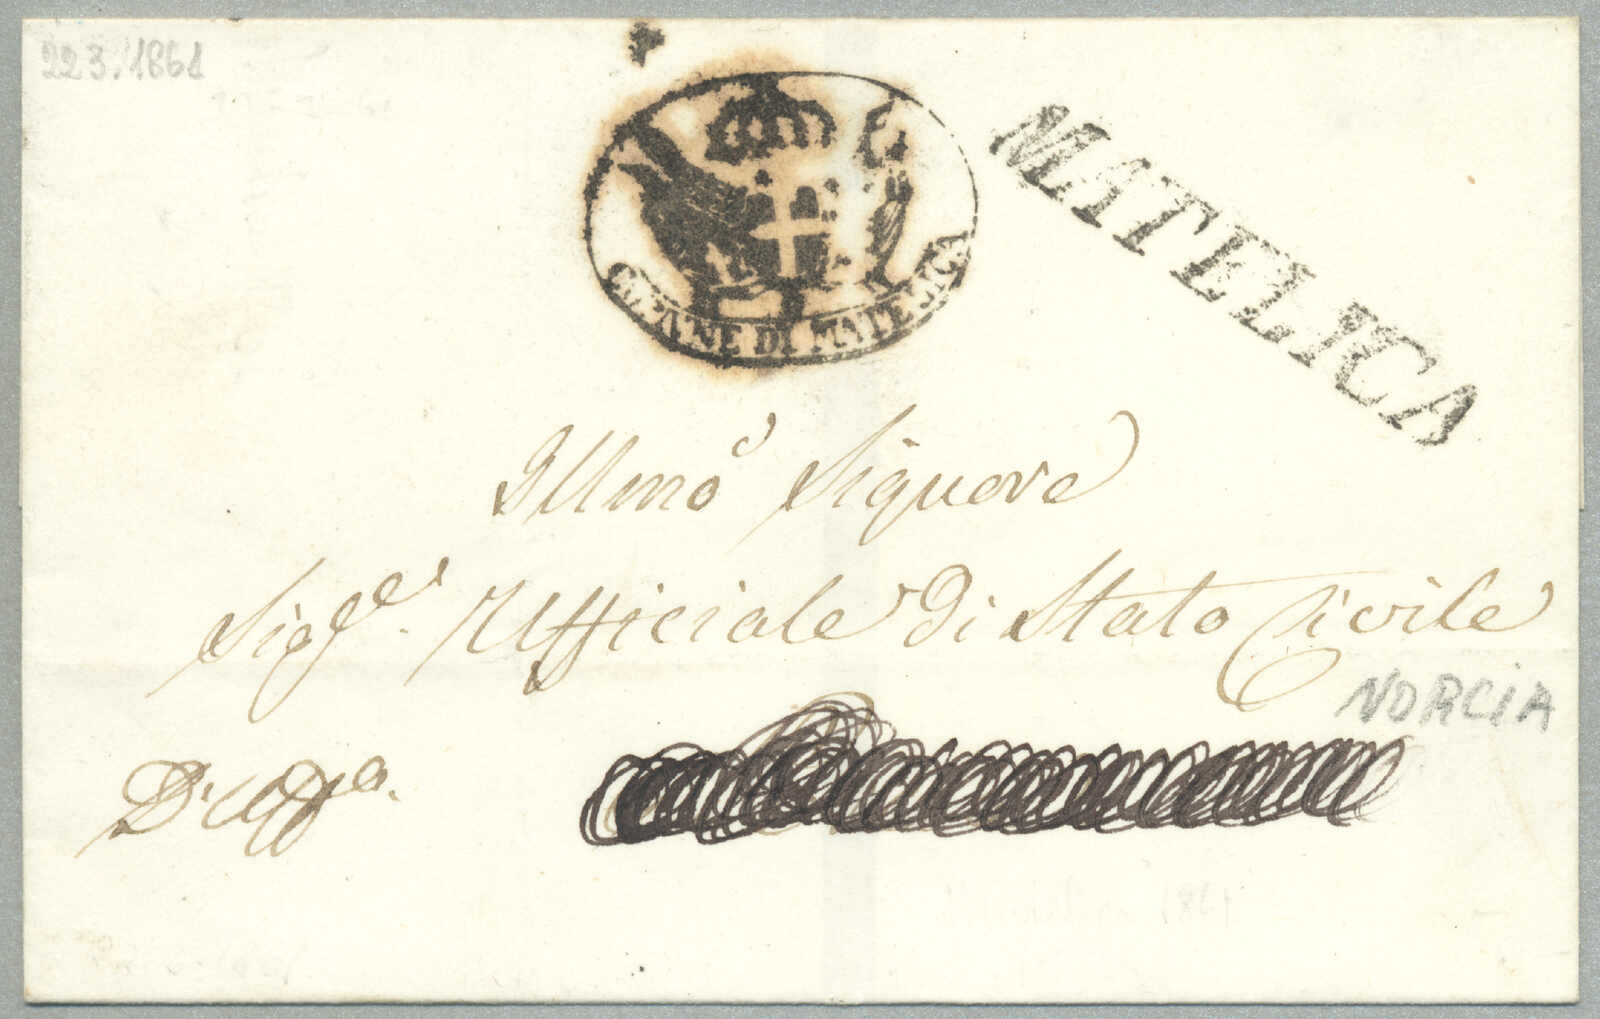 22 3. 1861
COMUNE DI MATELICA
MATELICA
Illmo Signore
Sigre. Ufficiale di Stato Civile
NORCIA
D'Uffo.
1861